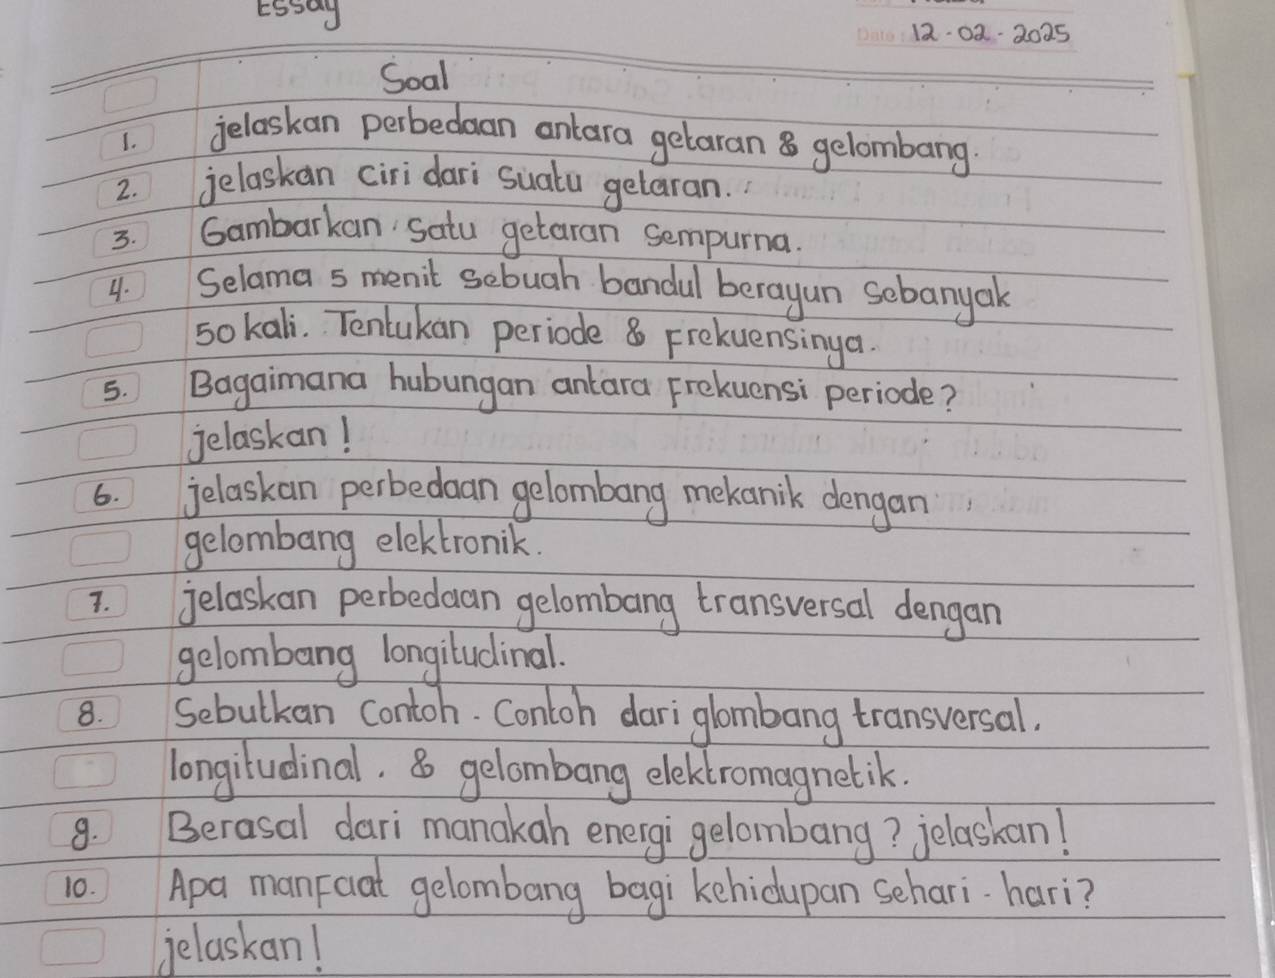 Essay
Date: 12-02-2025
Soal
1. jelaskan perbedaan antara getaran & gelombang.
2. jelaskan ciri dari suatu getaran.
3. Gambarkan satu getaran sempurna.
4. Selama 5 menit sebuah bandul berayun sebanyak
50 kali. Tentukan periode & frekuensinya.
5. Bagaimana hubungan antara frekuensi periode?
jelaskan!
6. jelaskan perbedaan gelombang mekanik dengan
gelombang elektronik.
7. jelaskan perbedaan gelombang transversal dengan
gelombang longitudinal.
8. Sebutkan contoh-contoh dari glombang transversal.
longitudinal. & gelombang elektromagnetik.
9. Berasal dari manakah energi gelombang? jelaskan!
10. Apa manfaat gelombang bagi kehidupan sehari-hari?
jelaskan!